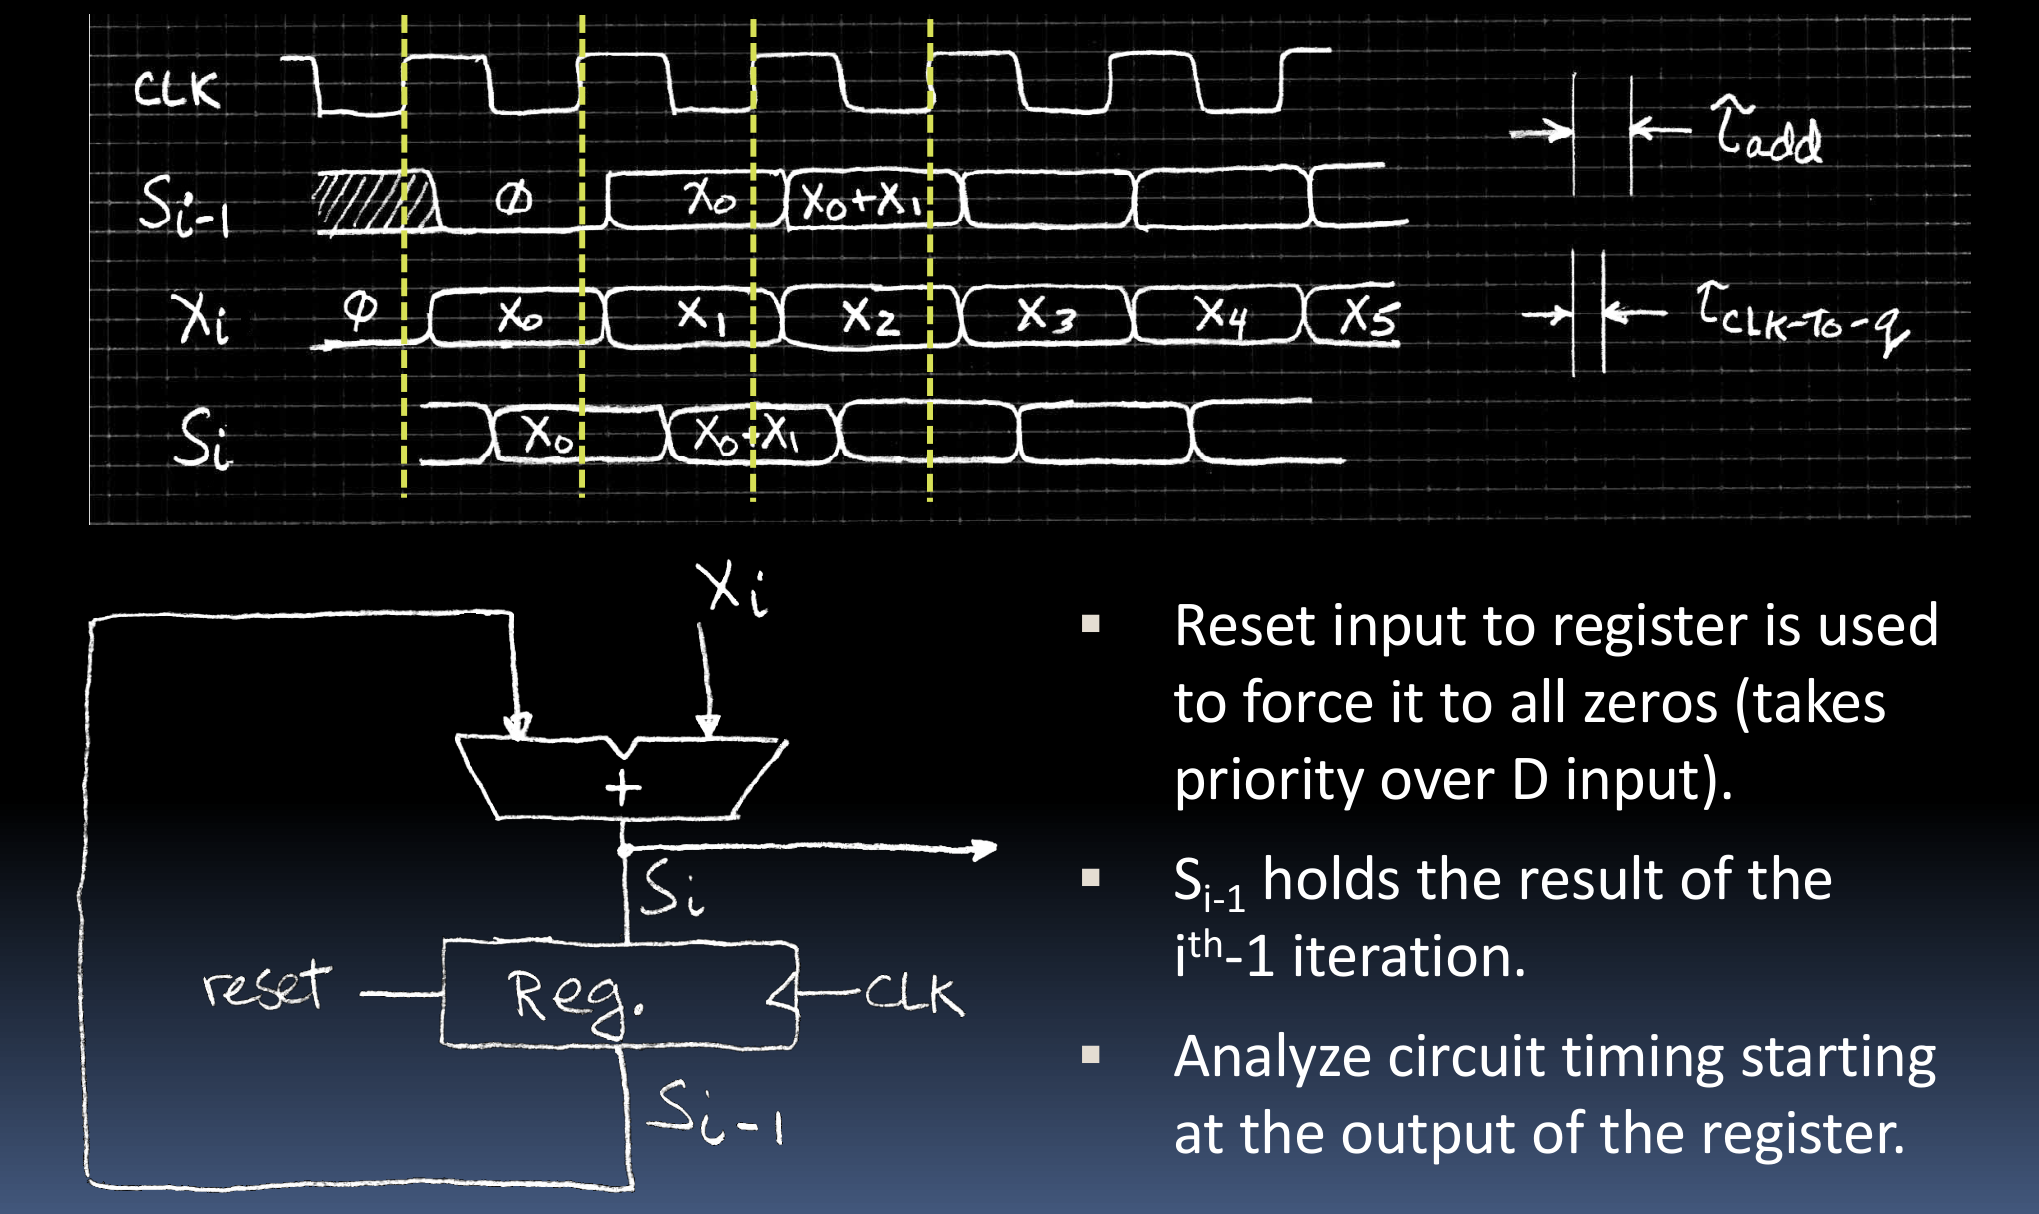 CLK
τadd
Si-1 ϕ X0 X0+X1
Xi ϕ X0 X1 X2 X3 X4 X5
τCLK-To-q
Si X0 X0+X1
Xi
+
Si
reset Reg. CLK
Si-1
▪ Reset input to register is used
to force it to all zeros (takes
priority over D input).
▪ Si-1 holds the result of the
ith-1 iteration.
▪ Analyze circuit timing starting
at the output of the register.